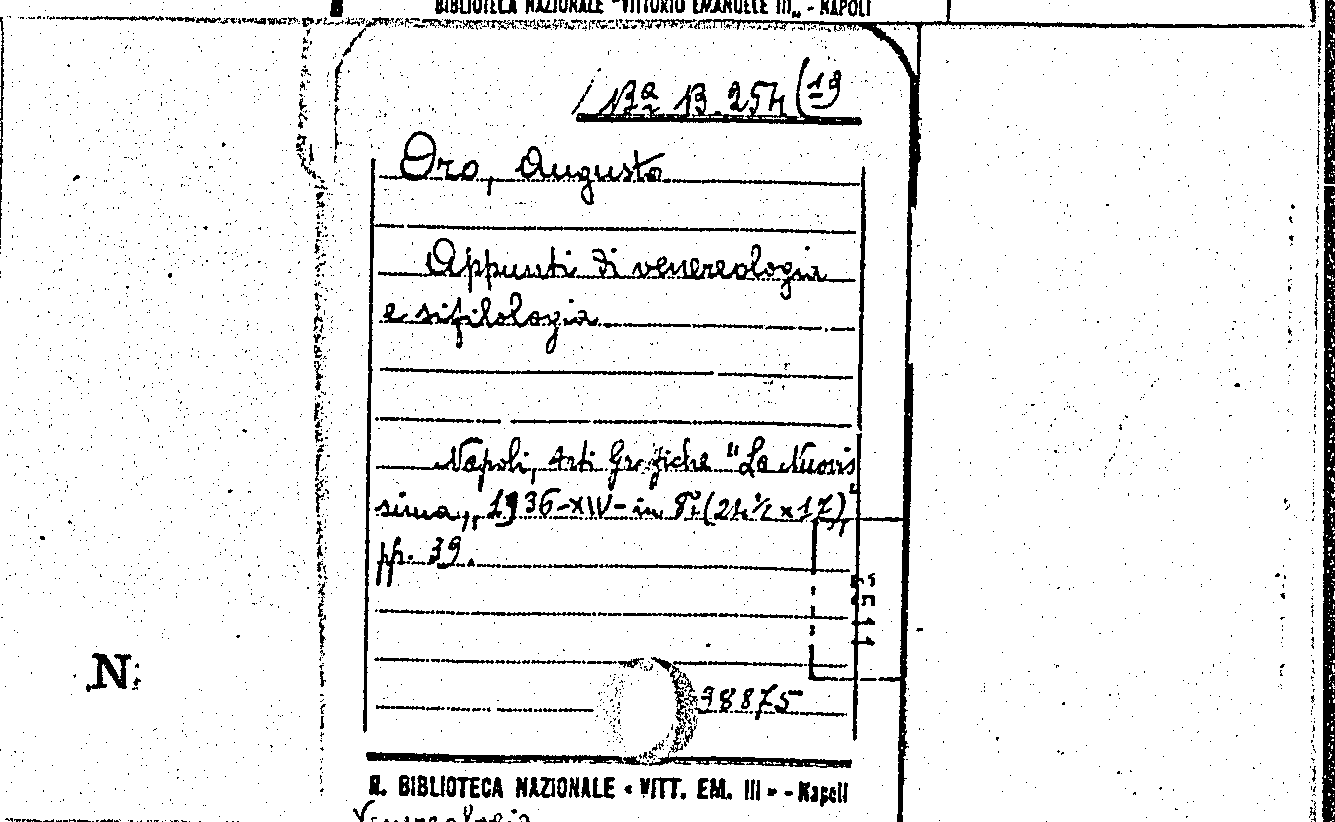 BIBLIOTECA NAZIONALE "VITTORIO EMANUELE III„ - NAPOLI
Bª B. 254 (19
Oro, Augusto
Appunti di venereologia
e sifilologia
Napoli, Arti Grafiche "La Nuovis
sima„, 1936-XIV- in 8º (24½ x 17),
pp. 39.
N.
98875
R. BIBLIOTECA NAZIONALE « VITT. EM. III » - Napoli
Venereologia